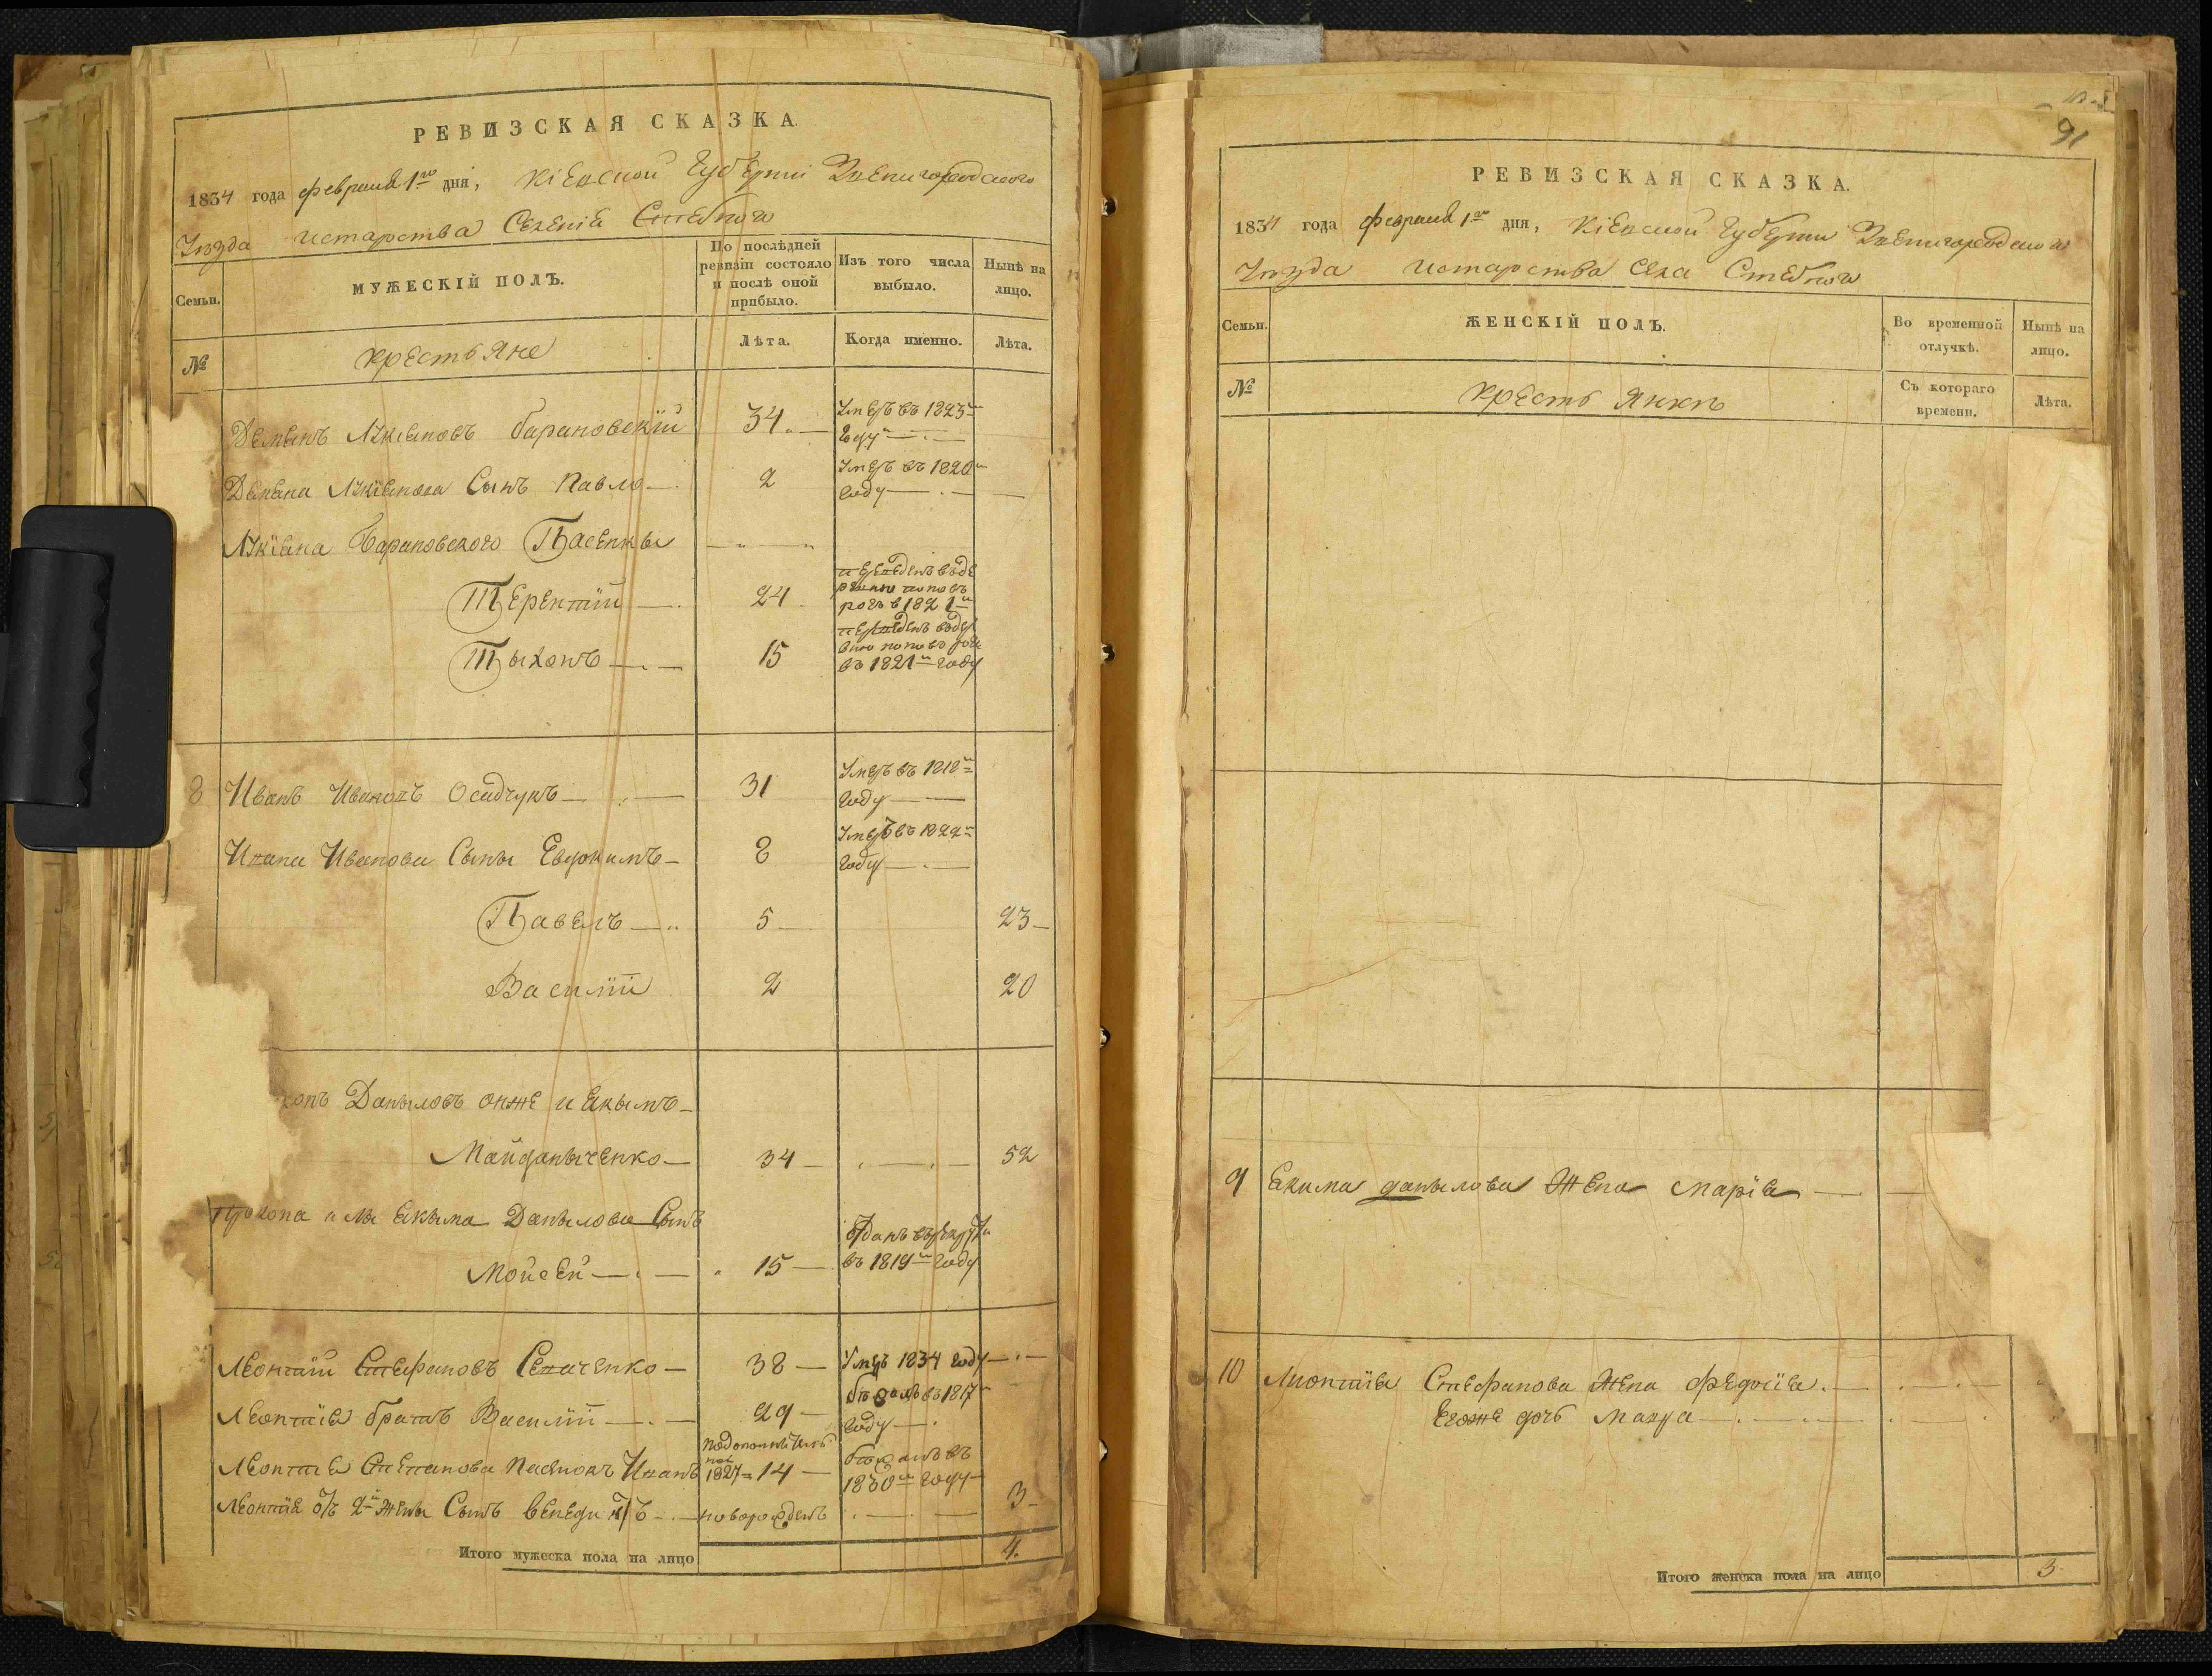 РЕВИЗСКАЯ СКАЗКА.
1834 года февраля 1го дня, Кіевской Губерніи Звенигородского
Уезда Старства Селенія Стебнога
Семьи.
МУЖЕСКІЙ ПОЛЪ.
По послѣдней
ревизіи состояло
и послѣ оной
прибыло.
Изъ того числа
выбыло.
Нынѣ на
лицо.
№
крестьяне
Лѣта.
Когда именно.
Лѣта.
Демянъ Лукіановъ Барановскій 34 Умеръ въ 1823м
году
Демяна Лукіанова Сынъ Павло 2 Умеръ въ 1820м
году
Лукіана Барановского Пасенкы
Терентій 24
в 1821м
Тыхонъ 15
въ 1821м году
8 Иванъ Ивановъ Осадчукъ 31 Умеръ въ 1818м
году
Ивана Иванова Сыны Евдокимъ 8 Умеръ въ 1822м
году
Павелъ 5 23
Василій 2 20
копъ Даныловъ онже и Екымъ
Майданыченко 34 52
Прокопа или Екыма Данылова Сынъ
Мойсей 15 Отданъ в рекруты
въ 1819м году
Леонтій Стефановъ Сеначенко 38 Умеръ 1834 году
Леонтія братъ Василій 29 въ 1817м
году
Леонтія Степанова Пасынокъ Иванъ 1827 14 въ
1830м году
Леонтія отъ 2й жены Сынъ Венедиктъ новорожденъ 3
Итого мужеска пола на лицо 4.
91
РЕВИЗСКАЯ СКАЗКА.
1834 года февраля 1го дня, Кіевской Губерніи Звенигородского
Уезда Старства Села Стебнога
Семьи.
ЖЕНСКІЙ ПОЛЪ.
Во временной
отлучкѣ.
Нынѣ на
лицо.
№
крестьянкы
Съ котораго
времени.
Лѣта.
9 Екима данылова Жена Марія
10 Лионтія Стефанова Жена Федосія
Егоже дочь Макра
Итого женска пола на лицо 3